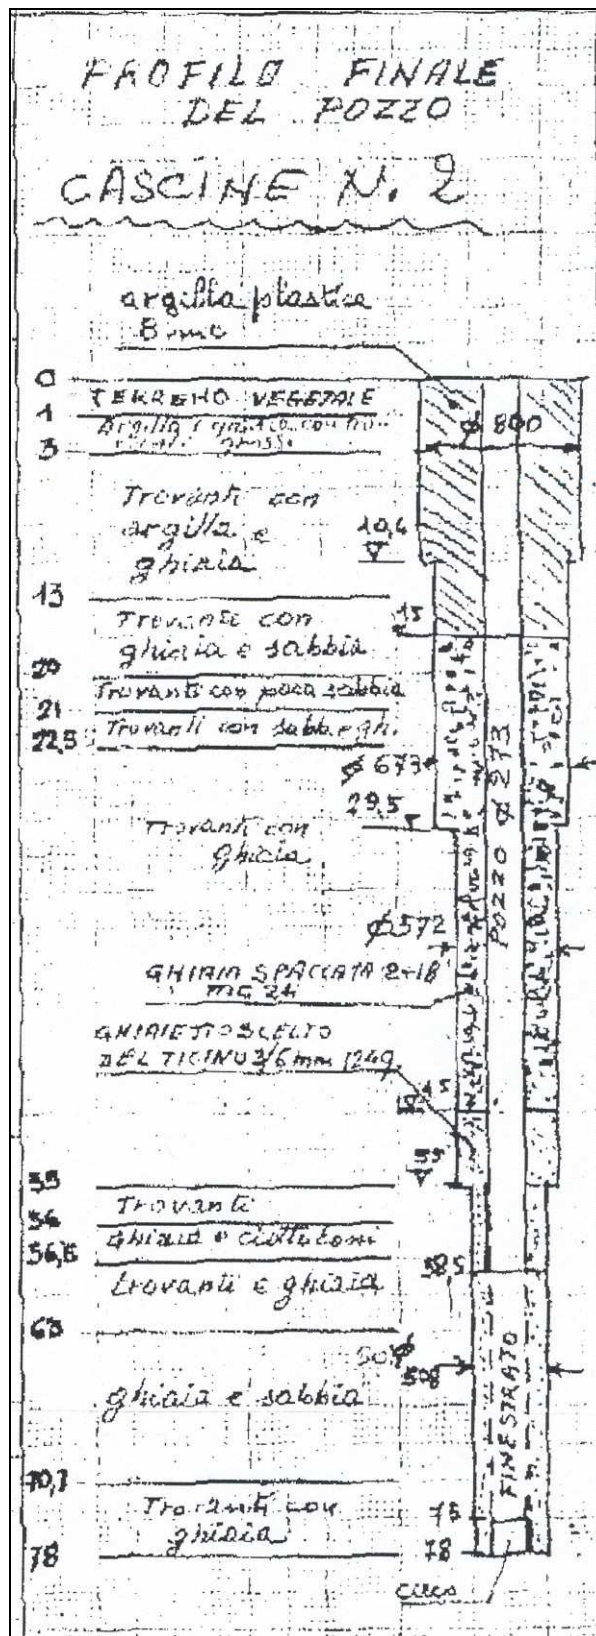 PROFILO FINALE
DEL POZZO
CASCINE N. 2
argilla plastica
8 mc
0
TERRENO VEGETALE
1
Argilla
grossi
ø 800
3
Trovanti con
argilla e
ghiaia
10,6
13
Trovanti con
ghiaia e sabbia
15
20
Trovanti con poca sabbia
21
Trovanti con sabb. e ghi.
22,5
ø 673
29,5
Trovanti con
ghiaia
POZZO ø 273
ø 572
GHIAIA SPACCATA 2÷18
MC 24
GHIAIETTO SCELTO
DEL TICINO 3/6 mm
55
55
Trovanti
56
Ghiaia e ciottoloni
56,8
trovanti e ghiaia
58,5
63
ø
508
ghiaia e sabbia
FINESTRATO
70,7
Trovanti con
ghiaia
75
78
78
cieco